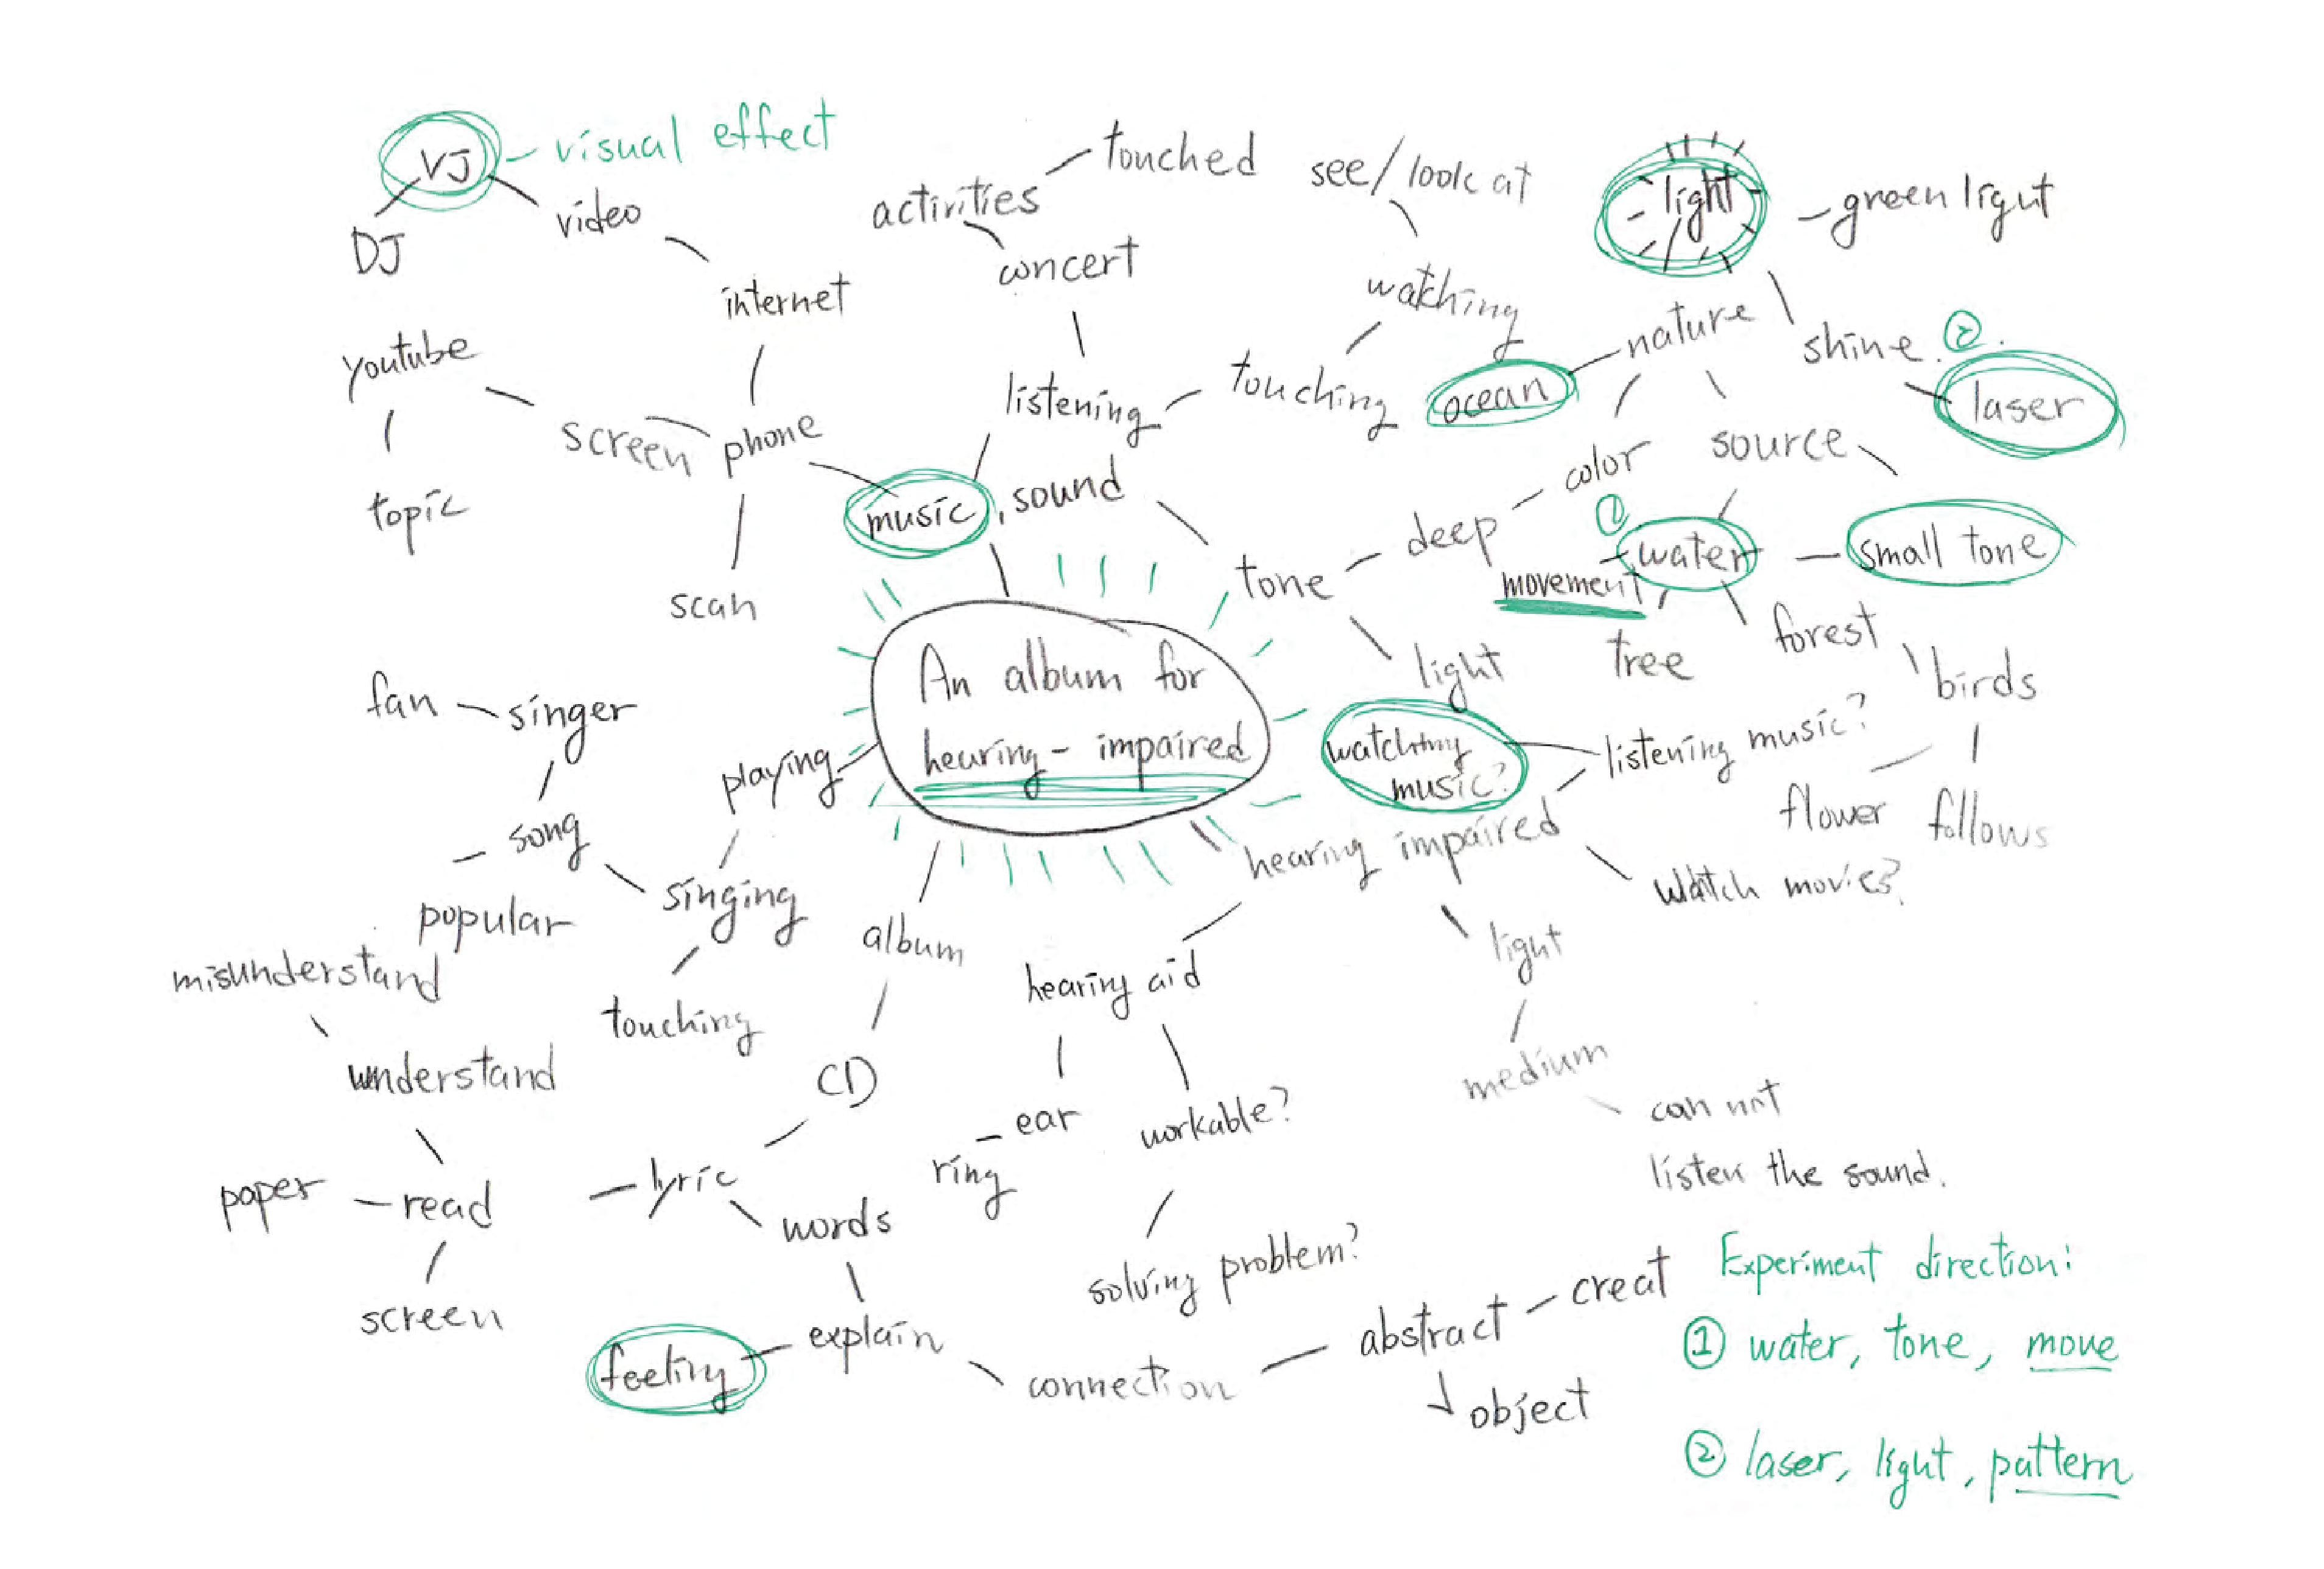 VJ – visual effect
DJ
video
internet
youtube
screen
phone
topic
scan
activities
touched
concert
see/look at
watching
listening
touching
music, sound
tone
light
green light
nature
shine
②
laser
ocean
color
source
deep
①
water
small tone
movement
tree
forest
birds
light
flower
follows
An album for
hearing-impaired
watching
music?
listening music?
hearing impaired
watch movies?
light
medium
can not
listen the sound.
fan
singer
playing
song
popular
singing
touching
album
CD
misunderstand
understand
paper
read
lyric
screen
words
explain
feeling
hearing aid
ear
ring
workable?
solving problem?
connection
abstract
creat
object
Experiment direction:
① water, tone, move
② laser, light, pattern